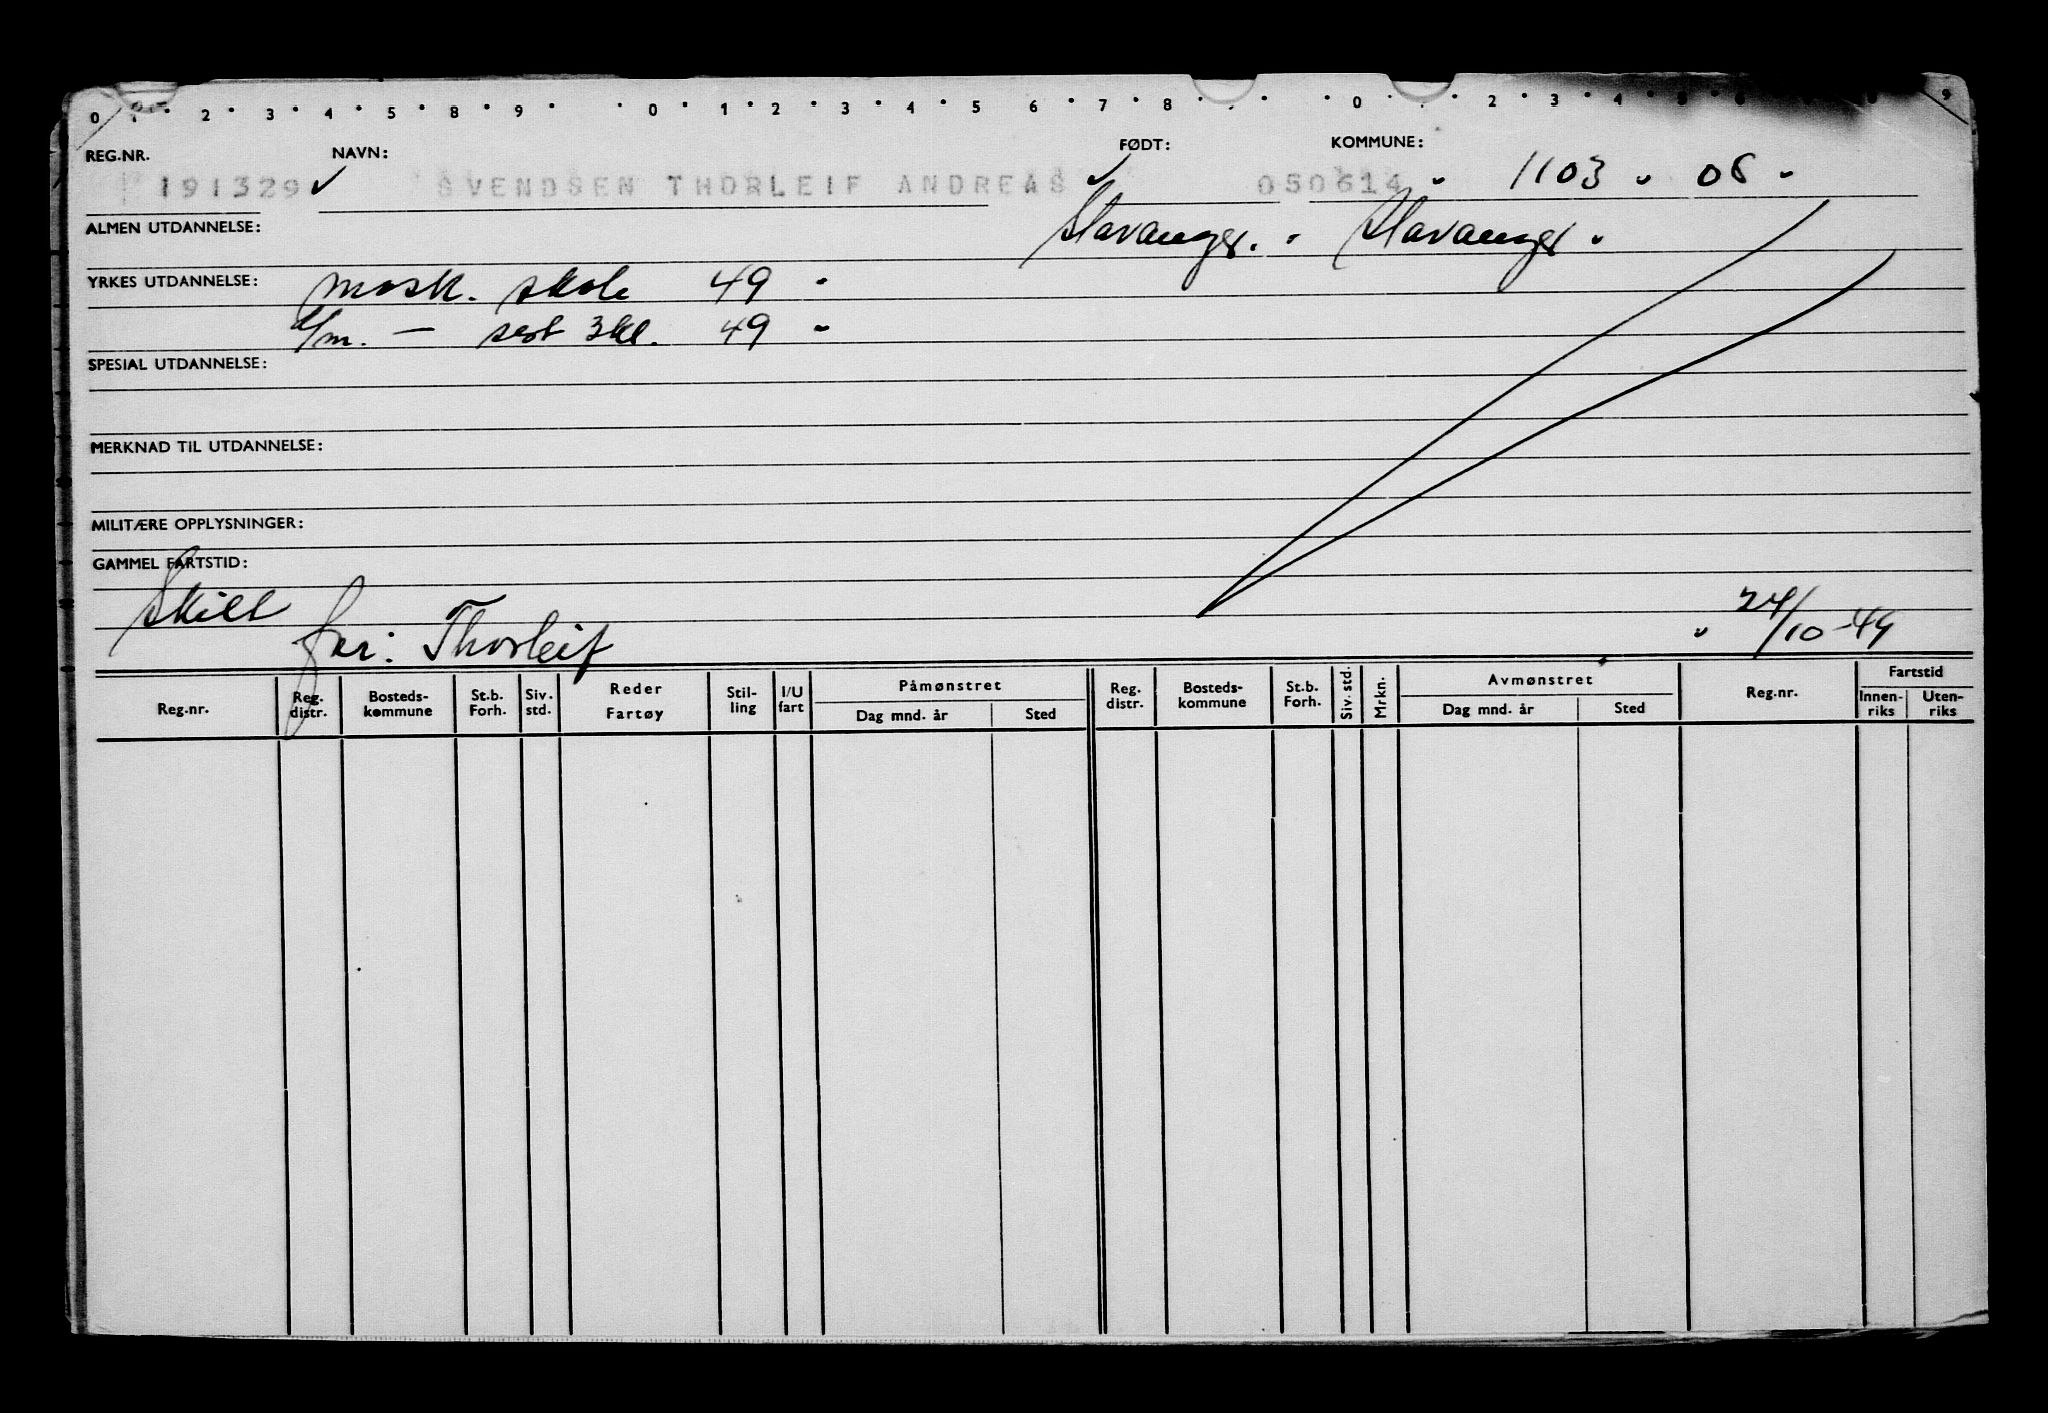 0 1 2 3 4 5 8 9 0 1 2 3 4 5 6 7 8 0 2 3 4 9
REG.NR. NAVN: FØDT: KOMMUNE:
191329 SVENDSEN THORLEIF ANDREAS 050614 1103 08
ALMEN UTDANNELSE: Stavanger. Stavanger
YRKES UTDANNELSE: mask. skole 49
sert 3kl. 49
SPESIAL UTDANNELSE:
MERKNAD TIL UTDANNELSE:
MILITÆRE OPPLYSNINGER:
GAMMEL FARTSTID:
Skilt
far: Thorleif 24/10-49
Reg.nr. Reg. distr. Bosteds-kommune St.b. Forh. Siv. std. Reder Fartøy Stil-ling I/U fart Påmønstret Dag mnd. år Sted Reg. distr. Bosteds-kommune St.b. Forh. Siv. std. Mrkn. Avmønstret Dag mnd. år Sted Reg.nr. Fartstid Innen-riks Uten-riks